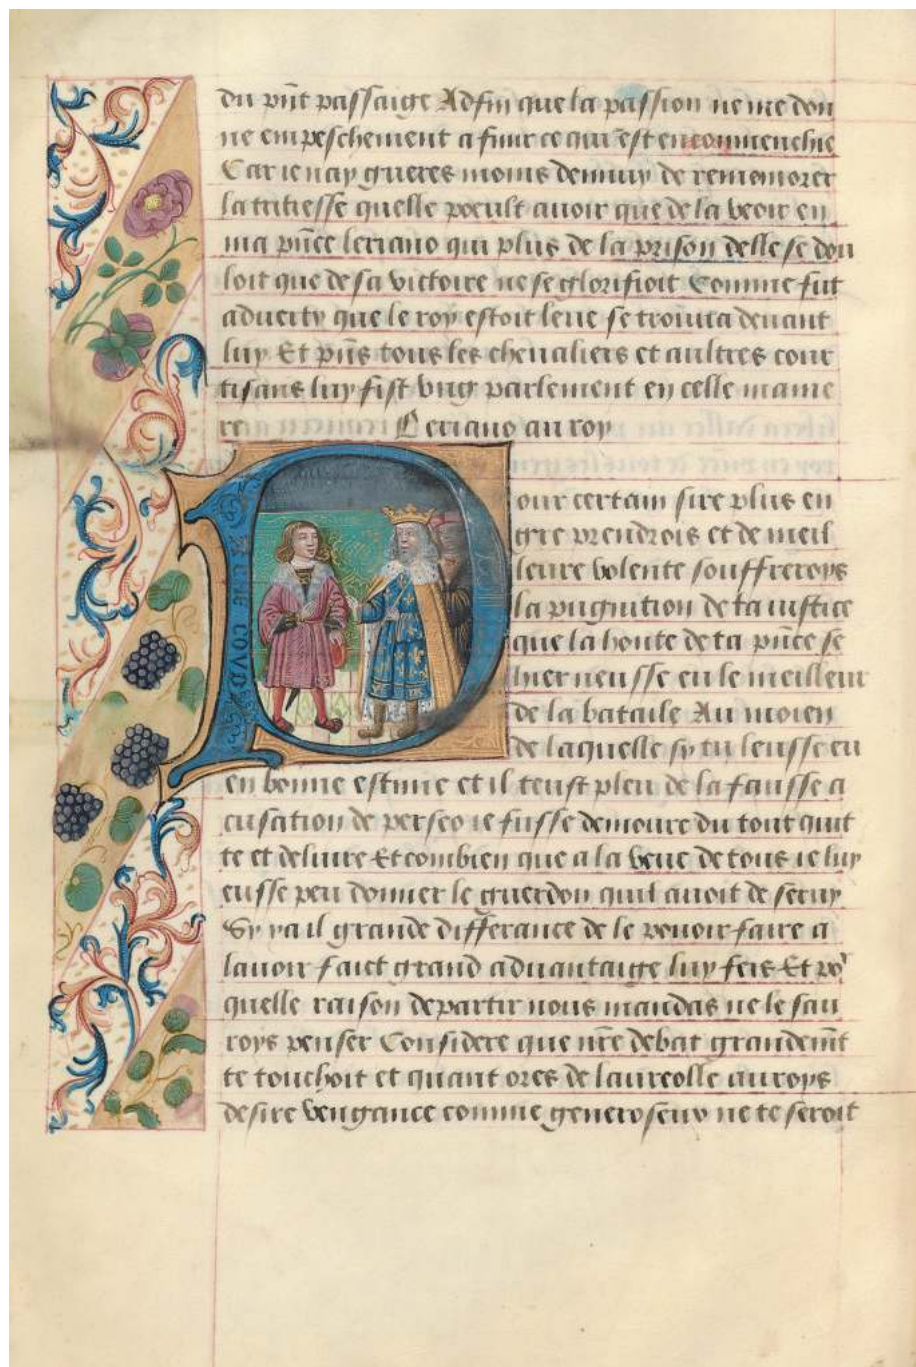 du pñt passaige Adfin que la passion ne me don
ne empeschement a finir ce qui est encommenchie
Car ie nay gueres moins dennuy de rememorer
la tristesse quelle poeult auoir que de la veoir en
ma pñce leriano qui plus de la prison delle se dou
loit que de sa victoire ne se glorifioit Comme fut
aduerty que le roy estoit leue se trouua deuant
luy Et pñs tous les cheualiers et aultres cour
tisans luy fist vng parlement en celle manie
re Leriano au roy
Pour certain sire plus en
gre prendrois et de meil
leure volente souffreroys
la pugnition de ta iustice
que la honte de ta pñce se
hier neusse eu le meilleur
de la bataile Au moien
de laquelle sy tu leusse eu
en bonne estime et il teust pleu de la faulsse a
cusation de perseo ie fusse demoure du tout quit
te et deliure Et combien que a la veue de tous ie luy
eusse peu donner le guerdon quil auoit de seruy
Sy ya il grande differance de le pouoir faire a
lauoir faict grand aduantaige luy feis Et po
quelle raison departir nous mandas ne le sau
roys penser Considere que nr̃e debat grandemt
te touchoit et quant ores de laureolle auroys
desire vengance comme generoseux ne te seroit